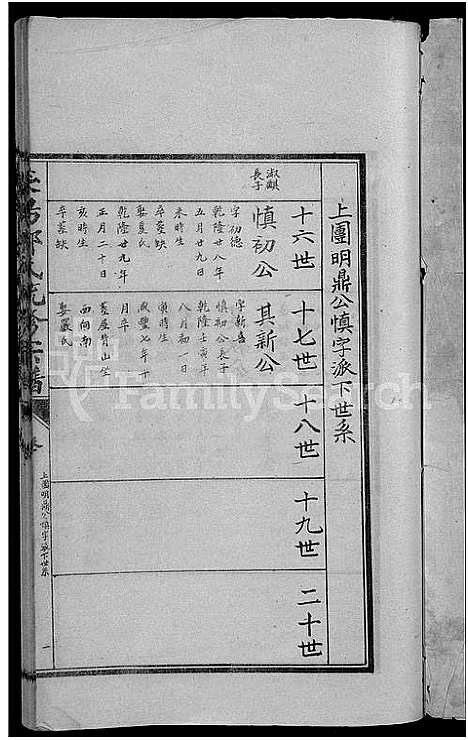 上團明鼎公慎字派下世系
十六世
十七世
十八世
十九世
二十世
淑麒
長子
慎初公
字初德
乾隆廿八年
五月廿九日
未時生
卒葬缺
娶夏氏
乾隆廿九年
正月二十日
亥時生
卒葬缺
其新公
字新喜
慎初公長子
乾隆壬寅年
八月初一日
寅時生
咸豐七年丁
巳年
葬屋背山坐
西向南
娶嚴氏
上團明鼎公慎字派下世系
一
FamilySearch